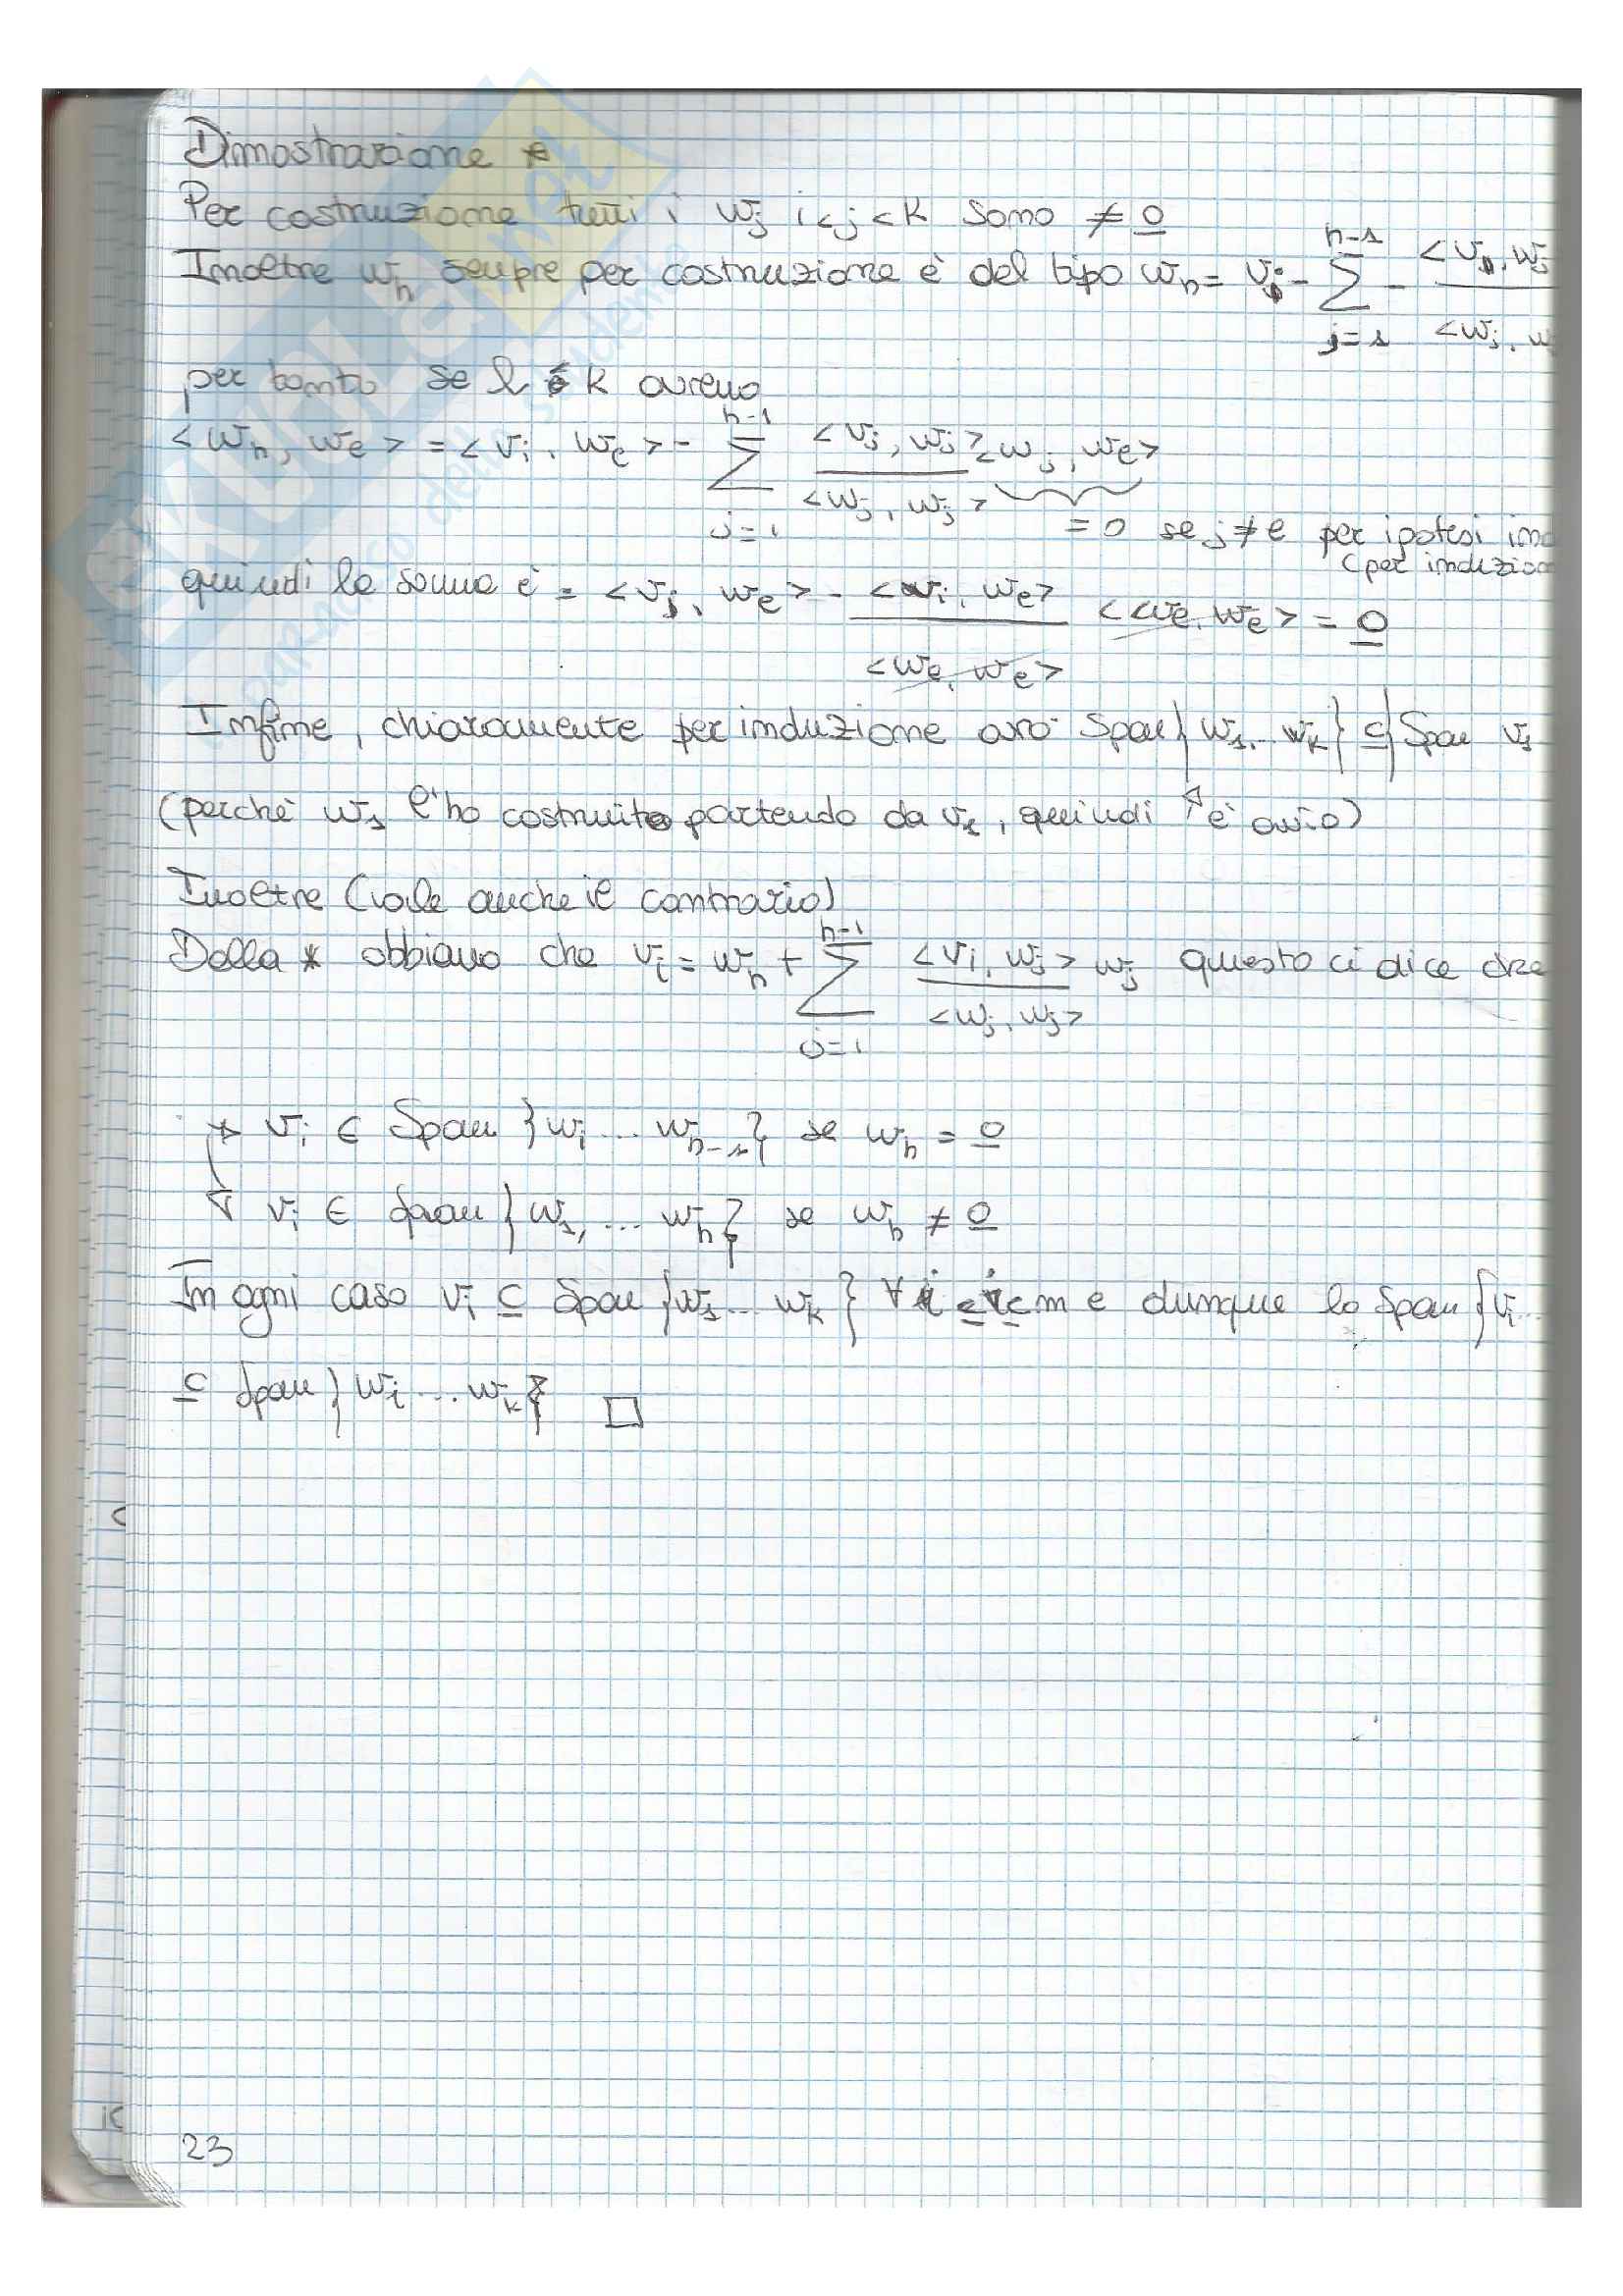 Dimostrazione *
Per costruzione tutti i wj i<j<k sono ≠ 0
Inoltre wh sempre per costruzione è del tipo wh = vi - h-1 Σ j=1 - <vi, wj / <wj, w
per tanto se l ≤ k avremo
<wh, we> = <vi, we> - h-1 Σ j=1 <vj, wj> / <wj, wj> <wj, we>
= 0 se j ≠ e per ipotesi ind
(per induzion
quindi la somma è = <vj, we> - <vi, we> / <we, we> <we, we> = 0
Infine, chiaramente per induzione avrò Span{w1... wk} ⊆ Span v1
(perché w1 l'ho costruito partendo da v1, quindi è ovvio)
Inoltre (vale anche il contrario)
Dalla * abbiamo che vi = wh + h-1 Σ j=1 <vi, wj> / <wj, wj> wj questo ci dice che
vi ∈ Span {wi ... wh-1} se wh = 0
vi ∈ Span {w1, ... wh} se wh ≠ 0
In ogni caso vi ⊆ Span {w1 ... wk} ∀ m e dunque lo Span {vi...
⊆ Span {wi ... wk} □
23